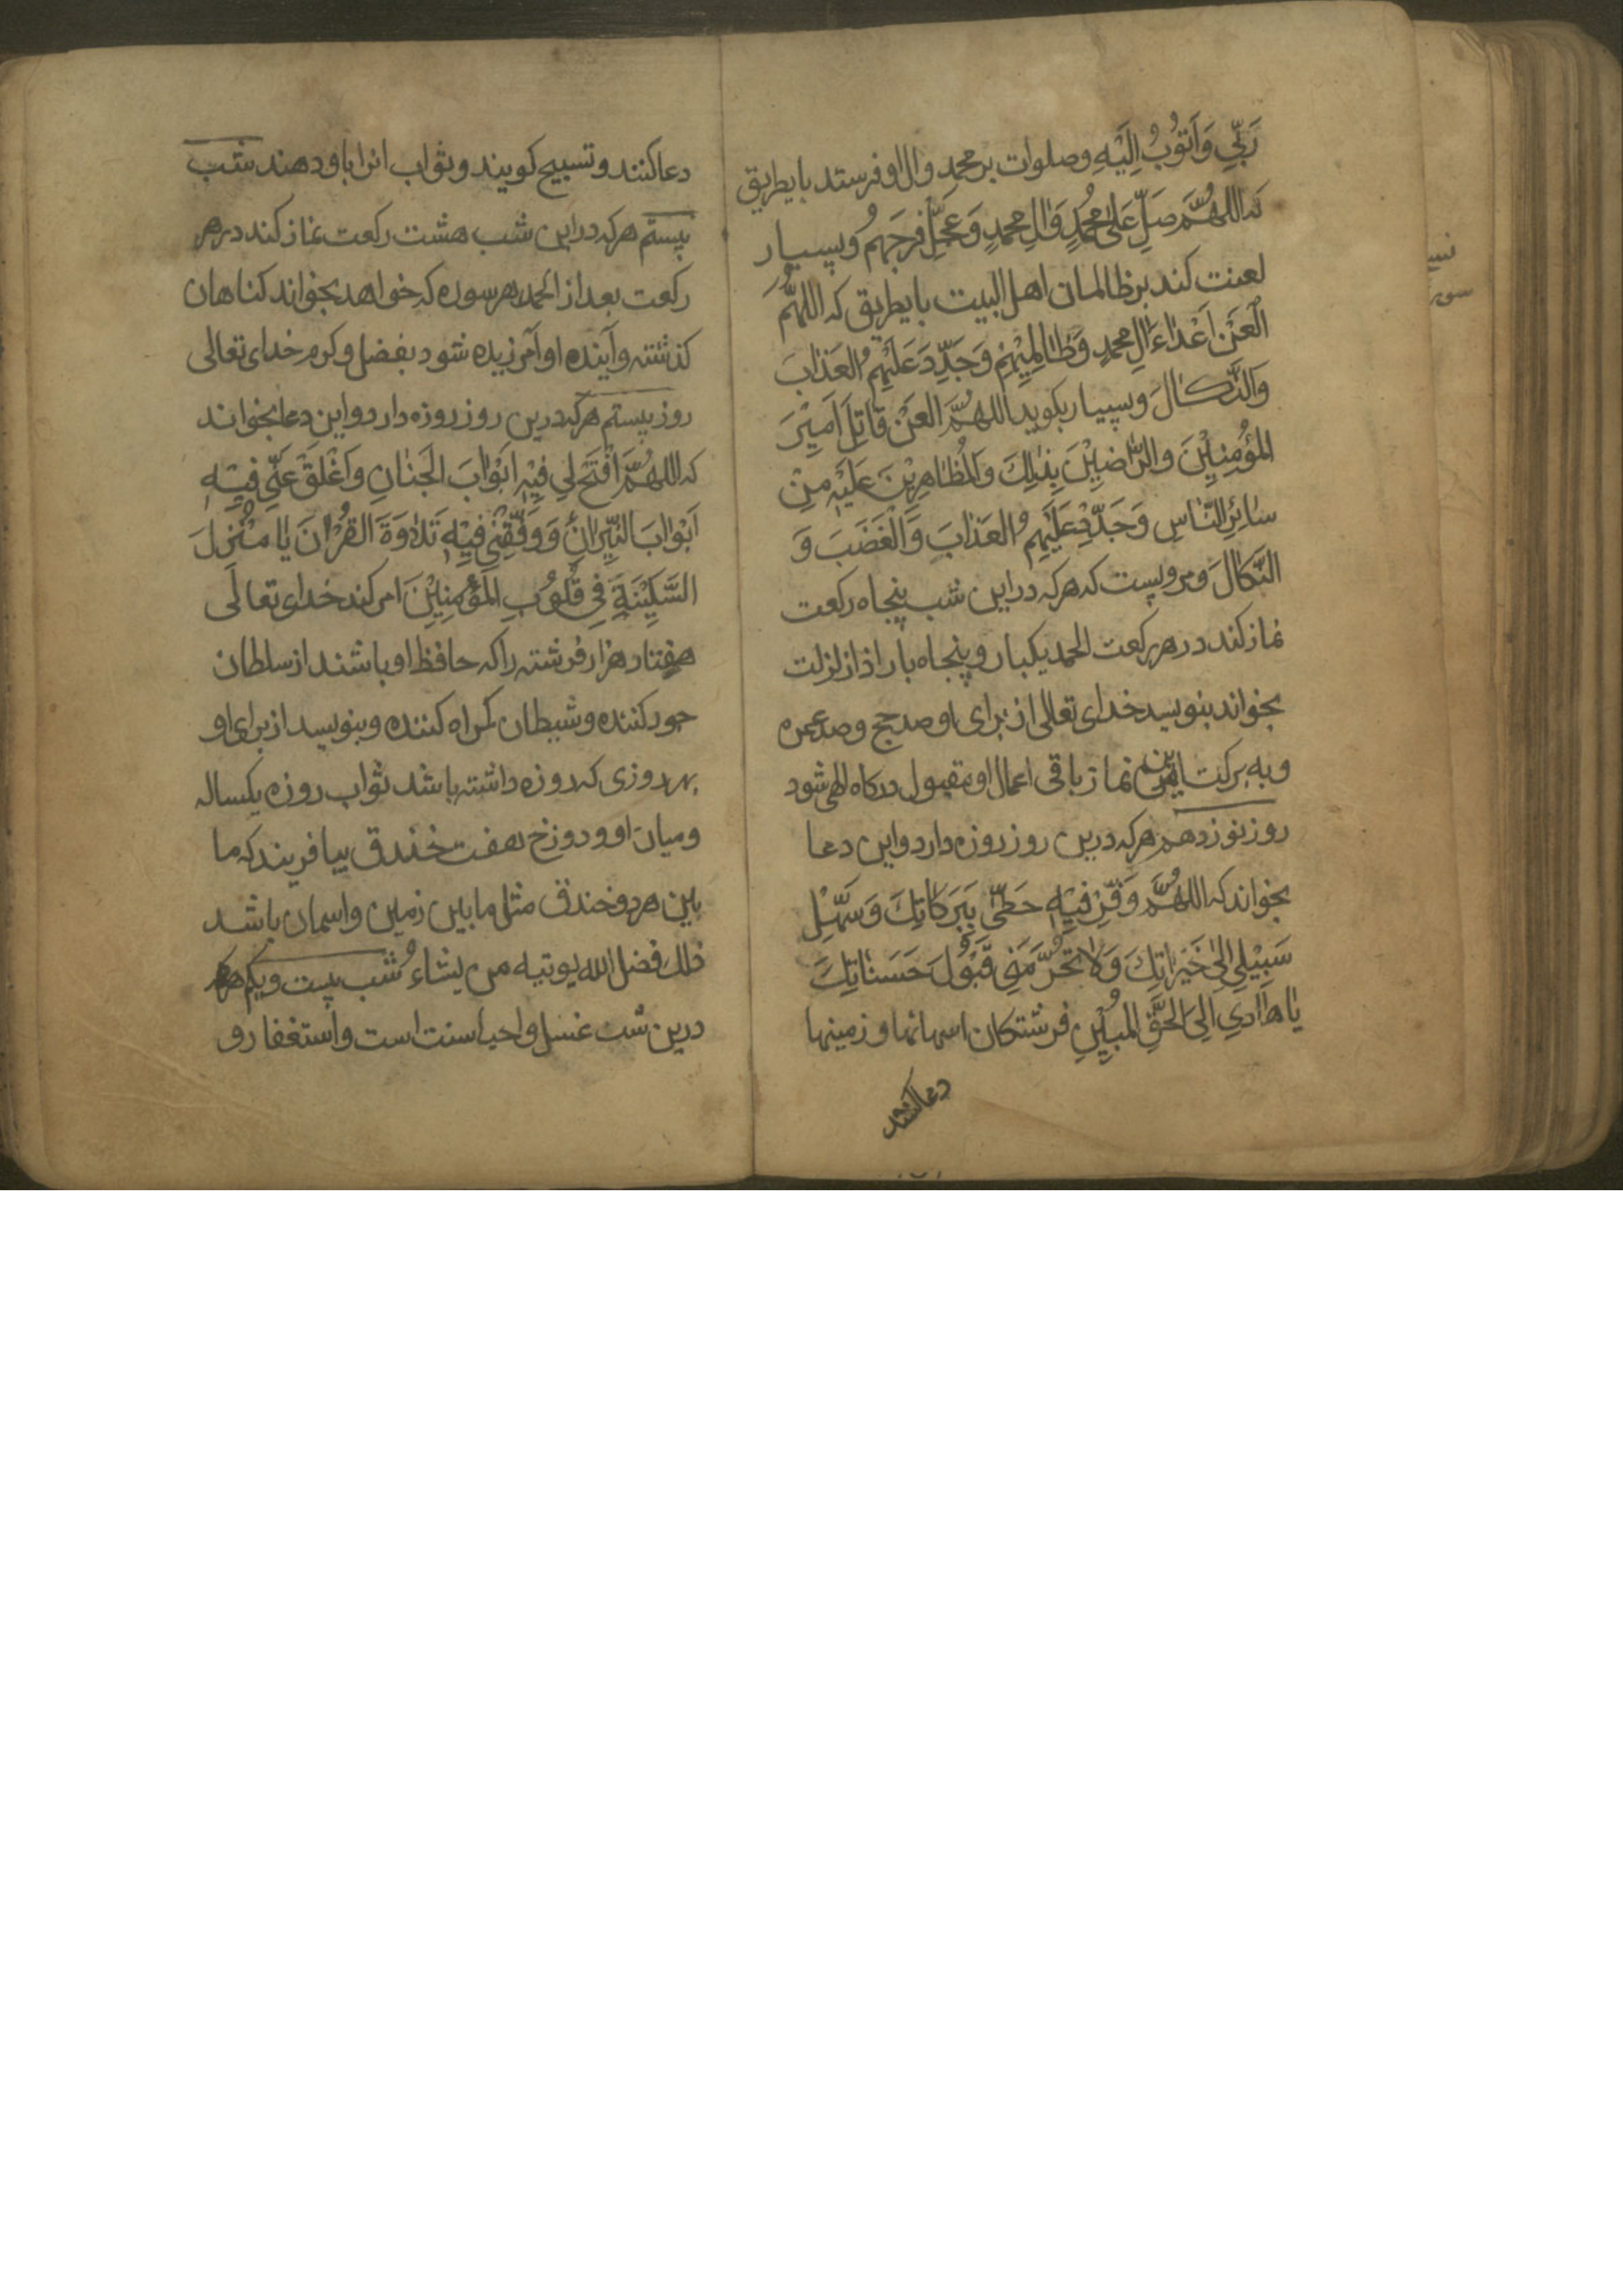 رَبّي وَاَتوُبُ اِلَيْهِ وصلوات بر محمد وال او فرستد باىطريق
كه اللهُمَّ صَلِّ عَلىٰ مُحمدٍ وَالِ محمدٍ وَعَجِّل فَرجَهم وبسيار
لعنت كند بر ظالمان اهل البيت باىطريق كه اللهُمَّ
الْعَنْ اَعْدٰاءَ الِ محمدٍ وَظٰالِمِيْهِمْ وَجَدِّدْ عَلَيْهِمُ العَذٰابَ
وَالنَّكٰالَ وبسيار بكويد اللهُمَّ العَنْ قٰاتِلَ اَميْرَ
المؤُمِنِيْنَ والرّٰاضِيْنَ بِذٰلِكَ وَالمُظٰاهِرِيْنَ عَلَيْهِ مِنْ
سٰائِرِ النّٰاسِ وَجَدِّدْ عَلَيْهِمُ العَذٰابَ وَالْغَضَبَ وَ
النَّكٰالَ ومرويست كه هركه در اين شب پنجاه ركعت
نماز كند در هر ركعت الحمد يكبار وپنجاه بار اذا زلزلت
بخواند بنويسد خداى تعالى از براى او صد حج وصد عمره
وبه بركت اين نماز باقى اعمال او مقبول دركاه الهى شود
روز نوزدهم هركه درين روز روزه دارد واين دعا
بخواند كه اللهُمَّ وَفِّرْ فيْهِ حَظّي بِبَرَكٰاتِكَ وَسَهِّلْ
سَبيْلي اِلىٰ خَيْرٰاتِكَ وَلاٰ تَحْرُمَّني قَبُوْلَ حَسَنٰاتِكَ
يٰا هٰادي اِلىَ الحَقِّ المُبيْنِ فرشتكان اسمانها وزمينها
دعا كنند
دعا كنند وتسبيح كويند وثواب انرا باو دهند شب
بيستم هركه در اين شب هشت ركعت نماز كند در هر
ركعت بعد از الحمد هر سوره كه خواهد بخواند كناهان
كذشته وآينده او آمرزيده شود بفضل وكرم خداى تعالى
روز بيستم هركه درين روز روزه دارد واين دعا بخواند
كه اللهُمَّ افْتَحْ لي فِيْهِ اَبَوْابَ الجَنٰانِ وَاَغْلَقْ عَنّي فِيْهِ
اَبْوٰابَ النّيْرٰانِ وَوَفِّقْنى فيْهِ تَلاٰوَةَ القُرْاٰنَ يٰا مُنْزِلَ
السَّكيْنَةِ فِي قُلُوْبِ المُؤْمِنِيْنَ امر كند خداى تعالَى
هفتاد هزار فرشته را كه حافظ او باشند از سلطان
جور كننده وشيطان كمراه كننده وبنويسد از براى او
بهر روزى كه روزه داشته باشد ثواب روزه يكساله
وميان او ودوزخ هفت خندق بيافريند كه ما
بين هر دو خندق مثل ما بين زمين واسمان باشد
ذلك فضل الله يوتيه من يشاء شب بيست ويكم هركه
درين شب غسل واحيا سنت است واستغفار و